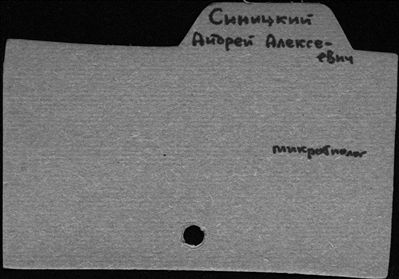 Синицкий
Андрей Алексе-
евич
микробиолог